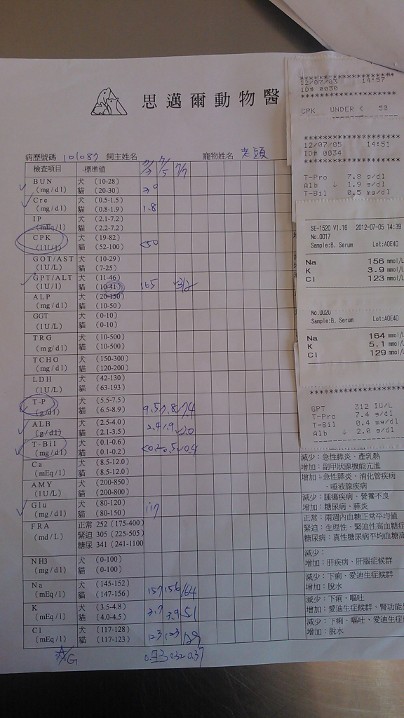 思邁爾動物醫
病歷號碼 101087 飼主姓名 寵物姓名 老頭
檢查項目 標準值 7/3 7/5 7/9
BUN 犬 (10-28)
(mg/dl) 貓 (20-30) 30
Cre 犬 (0.5-1.5)
(mg/dl) 貓 (0.8-1.9) 1.8
IP 犬 (2.1-7.2)
(mg/dl) 貓 (2.2-7.2)
CPK 犬 (19-82)
(IU/l) 貓 (52-100) <50
GOT/AST 犬 (10-29)
(IU/L) 貓 (7-25)
GPT/ALT 犬 (11-46)
(IU/L) 貓 (10-41) 165 312
ALP 犬 (20-150)
(mg/dl) 貓 (10-50)
GGT 犬 (0-10)
(IU/L) 貓 (0-10)
TRG 犬 (10-500)
(mg/dl) 貓 (10-500)
TCHO 犬 (150-300)
(mg/dl) 貓 (120-200)
LDH 犬 (42-130)
(IU/L) 貓 (63-193)
T-P 犬 (5.5-7.3)
(g/dl) 貓 (6.5-8.9) 9.5 7.8 7.4
ALB 犬 (2.5-4.0)
(g/dl) 貓 (2.1-3.5) 2.4 1.9 2.0
T-Bil 犬 (0.1-0.6)
(mg/dl) 貓 (0.1-0.2) <0.2 0.5 0.4
Ca 犬 (8.5-12.0)
(mEq/l) 貓 (8.5-12.0)
AMY 犬 (200-850)
(IU/L) 貓 (200-800)
Glu 犬 (80-120)
(mg/dl) 貓 (80-150) 117
FRA 正常 252 (175-400)
(md/L) 緊迫 305 (225-505)
糖尿 341 (241-1100)
NH3 犬 (0-100)
(mg/dl) 貓 (0-100)
Na 犬 (145-152)
(mEq/l) 貓 (147-156) 157 156 164
K 犬 (3.5-4.8)
(mEq/l) 貓 (4.0-4.5) 3.7 3.9 5.1
Cl 犬 (117-128)
(mEq/l) 貓 (117-123) 123 123 129
A/G 0.32 0.37
12/07/03
ID# 0030
CPK UNDER < 50
12/07/05 14:51
ID# 0034
T-Pro 7.8 g/dl
Alb 1.9 g/dl
T-Bil 0.5 mg/dl
SE-1520 V1.16 2012-07-05 14:39
No.0017
Sample:B. Serum Lot:ADE4C
Na 156 mmol/L
K 3.9 mmol/L
Cl 123 mmol/L
No.0020
Sample:B. Serum Lot:ADE4C
Na 164 mmol/L
K 5.1 mmol/L
Cl 129 mmol/L
GPT 312 IU/L
T-Pro 7.4 g/dl
T-Bil 0.4 mg/dl
Alb 2.0 g/dl
減少：
增加：肝疾病、肝腦症候群
減少：下痢、愛迪生症候群
增加：脫水
減少：下痢、嘔吐
增加：愛迪生症候群、腎功能
減少：下痢、嘔吐、愛迪生症
增加：脫水